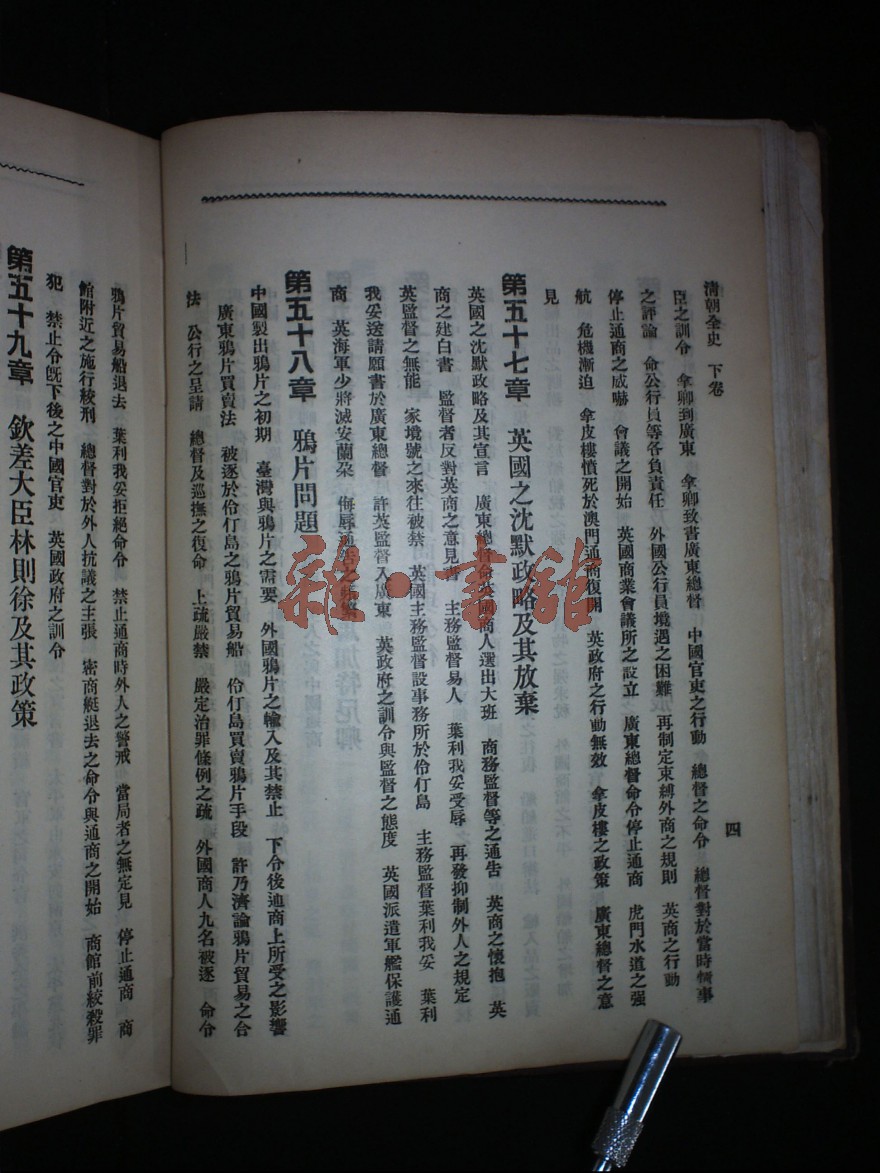 清朝全史 下卷
四
臣之訓令 拿卿到廣東 拿卿致書廣東總督 中國官吏之行動 總督之命令 總督對於當時情事
之評論 命公行員等各負責任 外國公行員境遇之困難 再制定束縛外商之規則 英商之行動
停止通商之威嚇 會議之開始 英國商業會議所之設立 廣東總督命令停止通商 虎門水道之强
航 危機漸迫 拿皮樓憤死於澳門通商復開 英政府之行動無效 拿皮樓之政策 廣東總督之意
見
第五十七章 英國之沈默政略及其放棄
英國之沈默政略及其宣言 廣東總督命英國商人選出大班 商務監督等之通告 英商之懷抱 英
商之建白書 監督者反對英商之意見書 主務監督易人 葉利我妥受辱 再發抑制外人之規定
英監督之無能 家境號之來往被禁 英國主務監督設事務所於伶仃島 主務監督葉利我妥 葉利
我妥送請願書於廣東總督 許英監督入廣東 英政府之訓令與監督之態度 英國派遣軍艦保護通
商 英海軍少將滅安蘭杂 侮辱通
第五十八章 鴉片問題
中國製出鴉片之初期 臺灣與鴉片之需要 外國鴉片之輸入及其禁止 下令後通商上所受之影響
廣東鴉片買賣法 被逐於伶仃島之鴉片貿易船 伶仃島買賣鴉片手段 許乃濟論鴉片貿易之合
法 公行之呈請 總督及巡撫之復命 上疏嚴禁 嚴定治罪條例之疏 外國商人九名被逐 命令
鴉片貿易船退去 葉利我妥拒絕命令 禁止通商時外人之警戒 當局者之無定見 停止通商 商
館附近之施行絞刑 總督對於外人抗議之主張 密商艇退去之命令與通商之開始 商館前絞殺罪
犯 禁止令旣下後之中國官吏 英國政府之訓令
第五十九章 欽差大臣林則徐及其政策
雜·書館